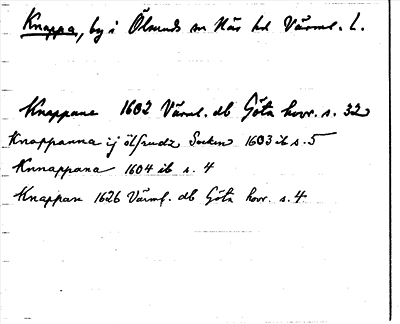 Knappa, by i Ölmuds sn Kär hd Värml. L.
Knappane 1602 Värml. db Göta hovr. s. 32
Knappanna ij ölssrudz Socken 1603 ib s. 5
Knnappana 1604 ib s. 4
Knappan 1626 Värml. db Göta hovr. s. 4